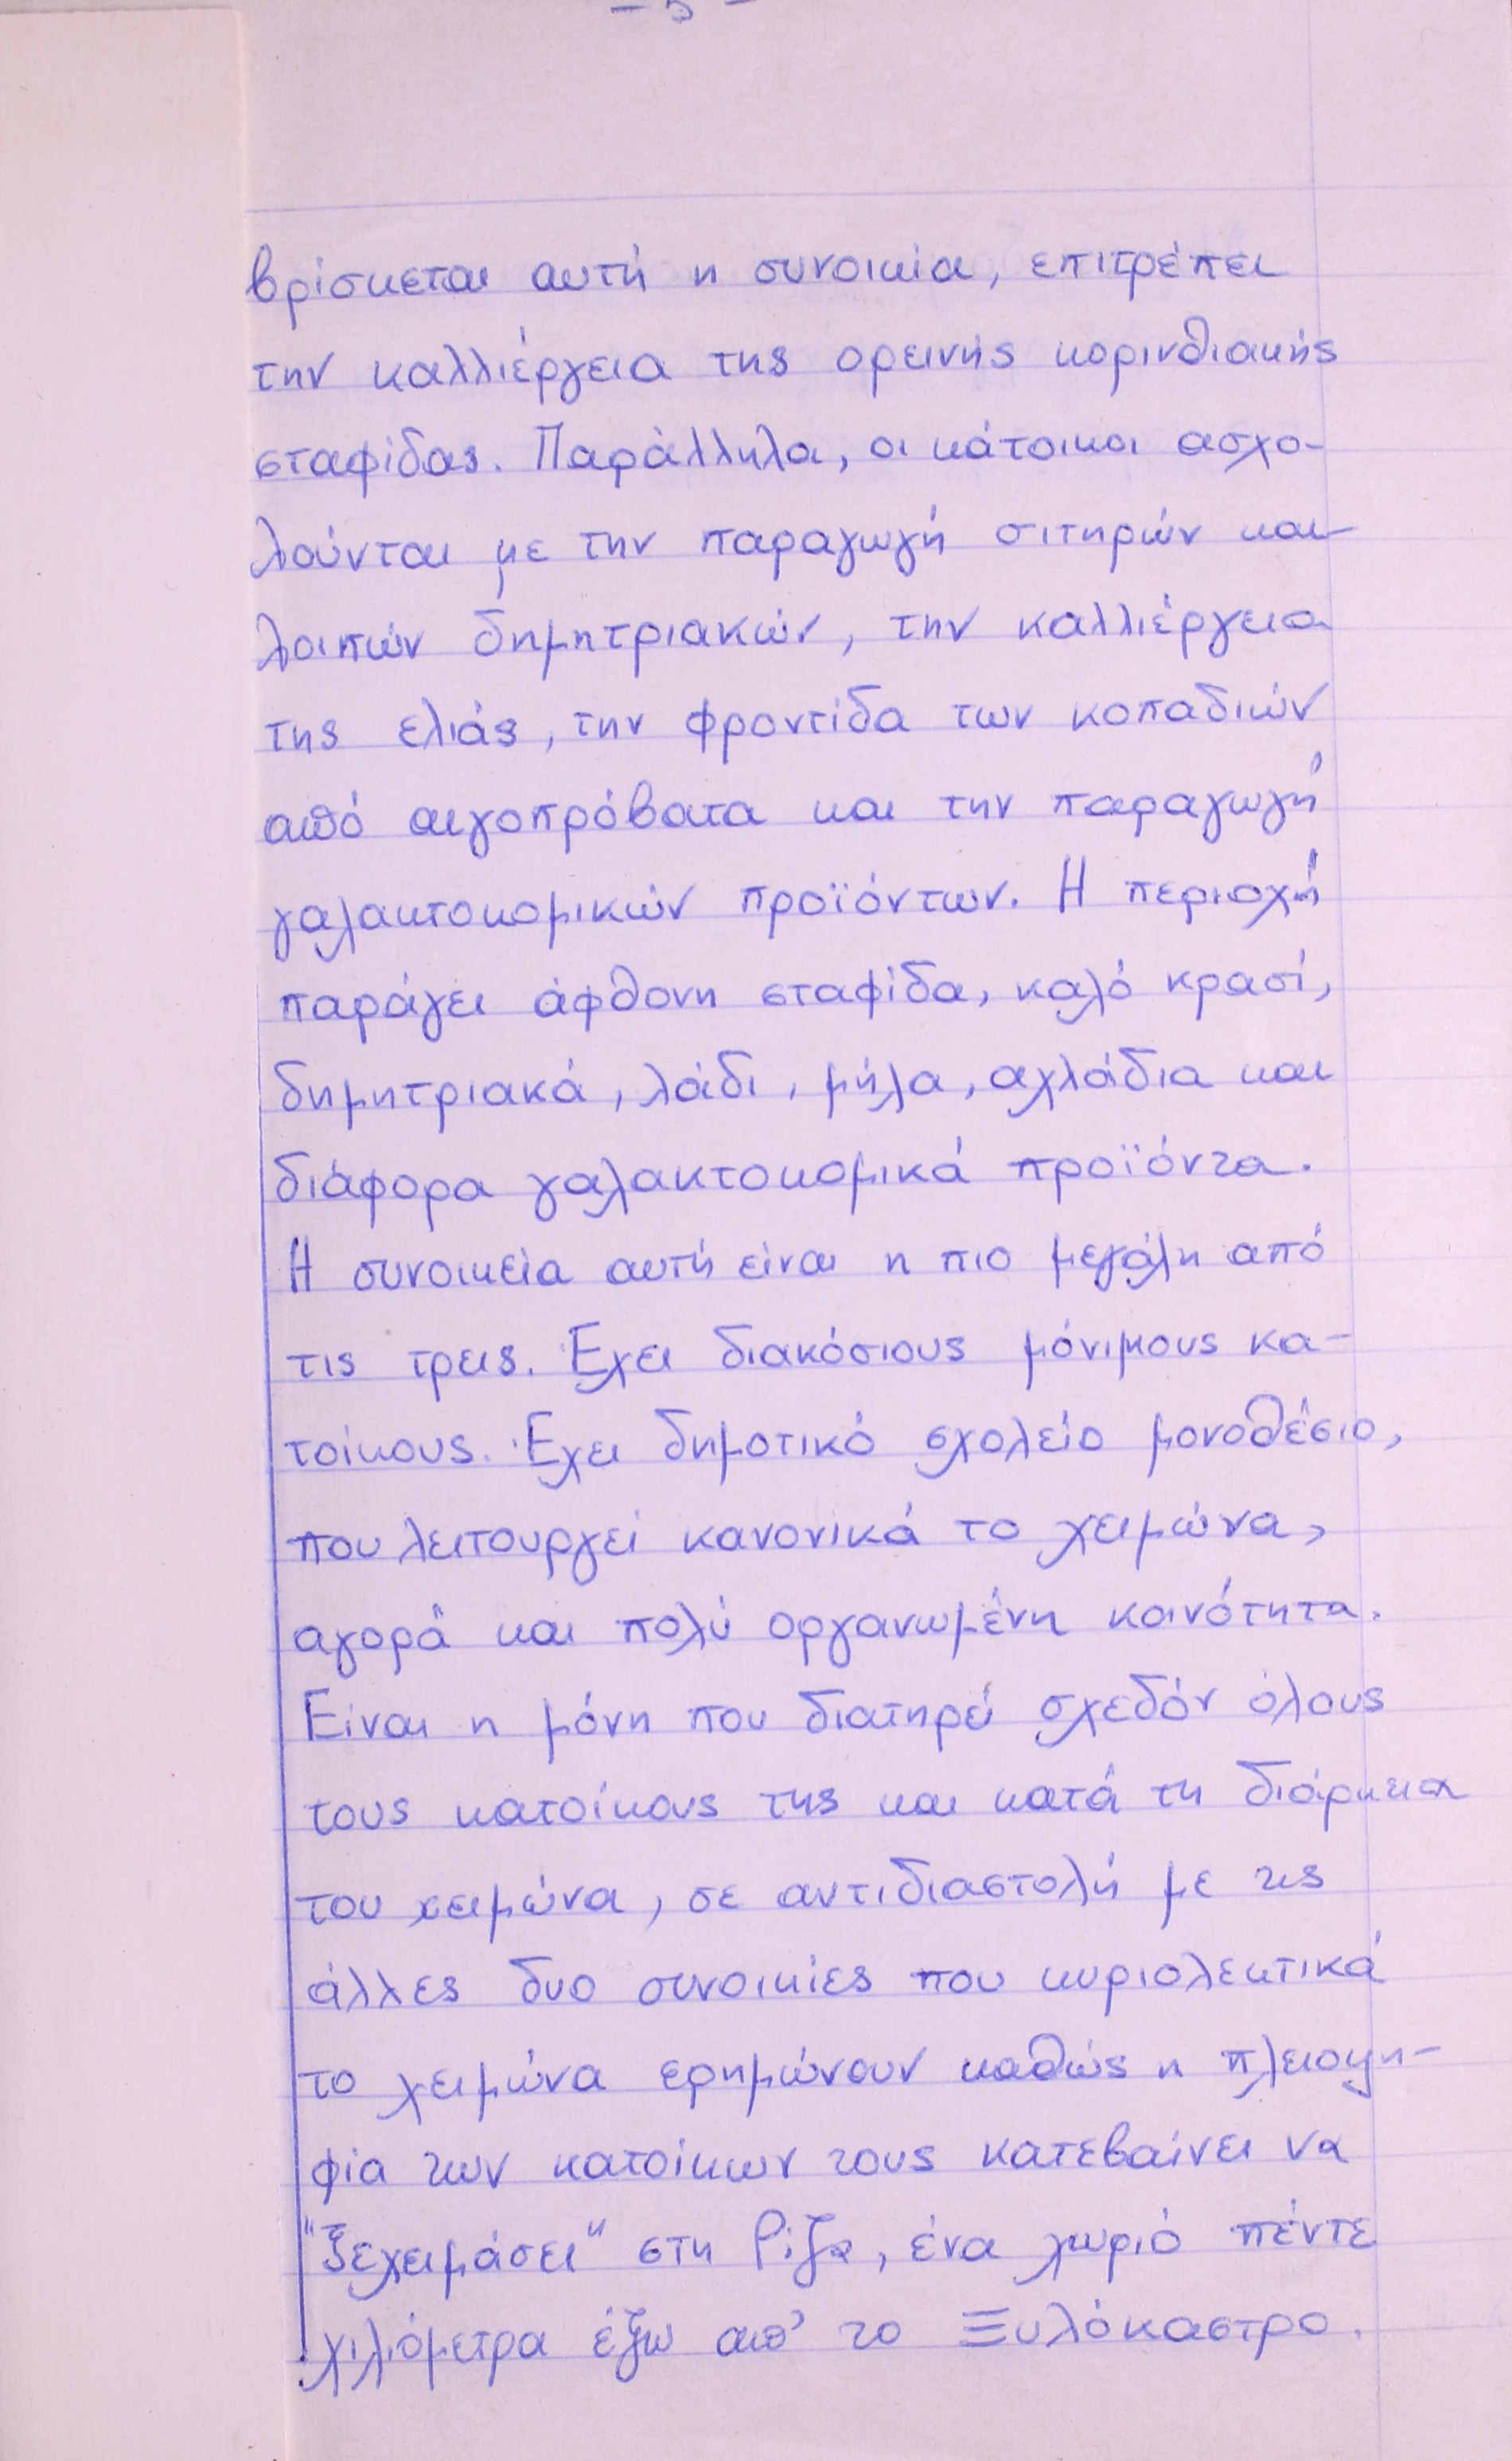 - 5 -
βρίσκεται αυτή η συνοικία, επιτρέπει
την καλλιέργεια της ορεινής κορινθιακής
σταφίδας. Παράλληλα, οι κάτοικοι ασχο-
λούνται με την παραγωγή σιτηρών και
λοιπών δημητριακών, την καλλιέργεια
της ελιάς, την φροντίδα των κοπαδιών
από αιγοπρόβατα και την παραγωγή
γαλακτοκομικών προϊόντων. Η περιοχή
παράγει άφθονη σταφίδα, καλό κρασί,
δημητριακά, λάδι, μήλα, αχλάδια και
διάφορα γαλακτοκομικά προϊόντα.
Η συνοικεία αυτή είναι η πιο μεγάλη από
τις τρεις. Έχει διακόσιους μόνιμους κα-
τοίκους. Έχει δημοτικό σχολείο μονοθέσιο,
που λειτουργεί κανονικά το χειμώνα,
αγορά και πολύ οργανωμένη κοινότητα.
Είναι η μόνη που διατηρεί σχεδόν όλους
τους κατοίκους της και κατά τη διάρκεια
του χειμώνα, σε αντιδιαστολή με τις
άλλες δυο συνοικίες που κυριολεκτικά
το χειμώνα ερημώνουν καθώς η πλειοψη-
φία των κατοίκων τους κατεβαίνει να
"ξεχειμάσει" στη Ρίζα, ένα χωριό πέντε
χιλιόμετρα έξω απ' το Ξυλόκαστρο.